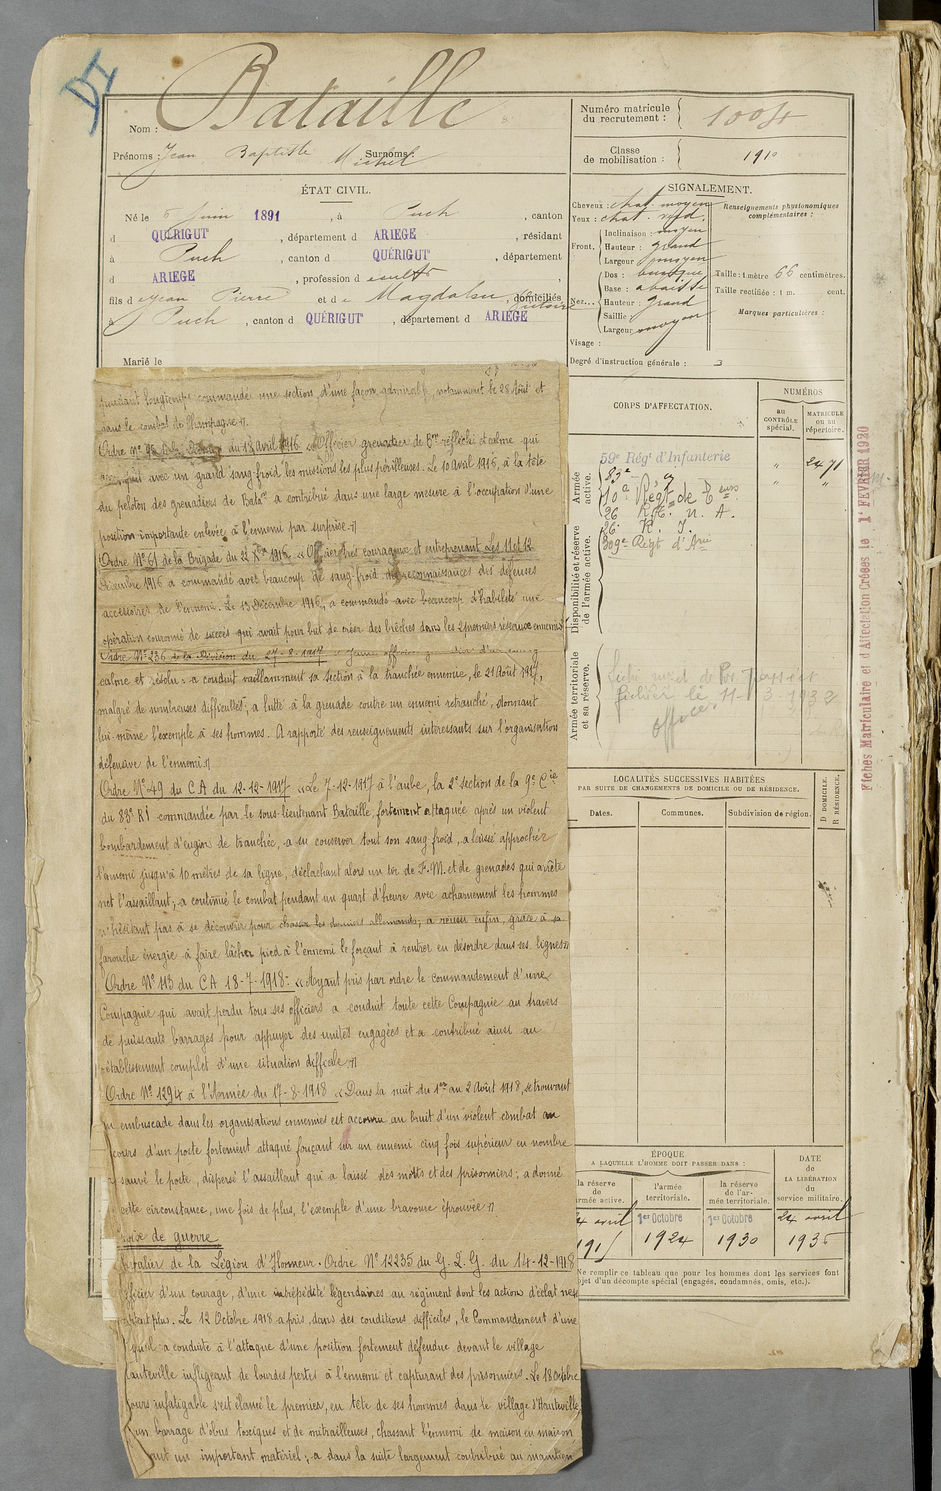 DI
Nom : Bataille
Prénoms : Jean Baptiste Michel Surnoms :
ÉTAT CIVIL.
Né le 6 Juin 1891, à Puch, canton
d QUERIGUT, département d ARIEGE, résidant
à Puch, canton d QUÉRIGUT, département
d ARIEGE, profession d
fils d e Jean Pierre et d e Magdalen, domiciliés
à Puch, canton d QUÉRIGUT, département d ARIEGE
Marié le
Numéro matricule
du recrutement :
Classe
de mobilisation : 1910
SIGNALEMENT.
Cheveux : chat. moyen
Yeux : chat.
Front, Inclinaison : moyen
Hauteur : grand
Largeur : moyen
Nez... Dos : busqué
Base : abaissé
Hauteur : grand
Saillie :
Largeur : moyen
Visage :
Renseignements physionomiques
complémentaires :
Taille : 1 mètre 66 centimètres.
Taille rectifiée : 1 m. cent.
Marques particulières :
Degré d'instruction générale : 3
CORPS D'AFFECTATION.
NUMÉROS
au
CONTRÔLE
spécial.
MATRICULE
ou au
répertoire.
Armée
active.
59e Régt d'Infanterie " 2471
83e " "
10e Régt de
26 R. N. A.
26. R. I.
309e Régt d'Arie
Disponibilité et réserve
de l'armée active.
Armée territoriale
et sa réserve.
11-3-1932
Fiches Matriculaire et d'Affectation Créées le 1er FEVRIER 1920
LOCALITÉS SUCCESSIVES HABITÉES
PAR SUITE DE CHANGEMENTS DE DOMICILE OU DE RÉSIDENCE.
Dates.
Communes.
Subdivision de région.
D DOMICILE.
R RÉSIDENCE.
ÉPOQUE
A LAQUELLE L'HOMME DOIT PASSER DANS :
la réserve
de
armée active.
l'armée
territoriale.
la réserve
de l'ar-
mée territoriale.
DATE
de
LA LIBÉRATION
du
service militaire.
4 avril 1er Octobre 1er Octobre 24 avril
191 1924 1930 193
Ne remplir ce tableau que pour les hommes dont les services font
objet d'un décompte spécial (engagés, condamnés, omis, etc.).
pendant longtemps commandé une section d'une façon admirable, notamment le 28 Août et
dans le combat de Champagne".
Ordre N° du 18 avril 1916. "Officier grenadier de Bon réfléchi et calme qui
avec un grand sang froid les missions les plus périlleuses. Le 10 avril 1916, à la tête
du peloton des grenadiers de Baton a contribué dans une large mesure à l'occupation d'une
position importante enlevée à l'ennemi par surprise."
Ordre N° 61 de la Brigade du 22 Xbre 1916 "Officier très courageux et entreprenant Les 11 et 12
Décembre 1916 a commandé avec beaucoup de sang froid des reconnaissances des défenses
accessoires de l'ennemi. Le 13 Décembre 1916, a commandé avec beaucoup d'habileté une
opération couronné de succès qui avait pour but de créer des brêches dans les 2 premiers réseaux ennemis"
Ordre N° 236 de la Division du 27-8-1917 "Jeune officier
calme et résolu : a conduit vaillamment sa section à la tranchée ennemie, le 21 Août 1917,
malgré de nombreuses difficultés, a lutté à la grenade contre un ennemi retranché, donnant
lui-même l'exemple à ses hommes. A rapporté des renseignements intéressants sur l'organisation
défensive de l'ennemi."
Ordre N° 49 du CA du 12-12-1917 "Le 7-12-1917 à l'aube, la 2e section de la 9e Cie
du 83e RI commandée par le sous-lieutenant Bataille, fortement attaquée après un violent
bombardement d'engins de tranchée, a su conserver tout son sang froid, a laissé approcher
l'ennemi jusqu'à 10 mètres de sa ligne, déclachant alors un tir de F.M. et de grenades qui arrête
net l'assaillant, a continué le combat pendant un quart d'heure avec acharnement les hommes
n'hésitant pas à se découvrir pour chasser les derniers allemands, a réussi enfin, grâce à sa
farouche énergie à faire lâcher pied à l'ennemi le forçant à rentrer en désordre dans ses lignes"
Ordre N° 113 du CA 18-7-1918 - "Ayant pris par ordre le commandement d'une
Compagnie qui avait perdu tous ses officiers a conduit toute cette Compagnie au travers
de puissants barrages pour appuyer des unités engagées et a contribué ainsi au
rétablissement complet d'une situation difficile."
Ordre N° 1294 à l'Armée du 17-8-1918 "Dans la nuit du 1er au 2 Août 1918, se trouvant
en embuscade dans les organisations ennemies est accouru au bruit d'un violent combat au
cours d'un poste fortement attaqué fonçant sur un ennemi cinq fois supérieur en nombre
sauvé le poste, dispersé l'assaillant qui a laissé des morts et des prisonniers ; a donné
cette circonstance, une fois de plus, l'exemple d'une bravoure éprouvée"
Croix de guerre
Chevalier de la Légion d'Honneur. Ordre N° 12235 du G.Q.G. du 14-12-1918
officier d'un courage, d'une intrépidité légendaires au régiment dont les action d'éclat ne se
comptent plus. Le 12 Octobre 1918 a pris, dans des conditions difficiles, le Commandement d'une
a conduite à l'attaque d'une position fortement défendue devant le village
Hauteville infligeant de lourdes pertes à l'ennemi et capturant des prisonniers. Le 18 Octobre
toujours infatigable s'est élancé le premier, en tête de ses hommes dans le village d'Hauteville,
un barrage d'obus toxiques et de mitrailleuses, chassant l'ennemi de maison en maison
un important matériel ; a dans la suite largement contribué au maintien